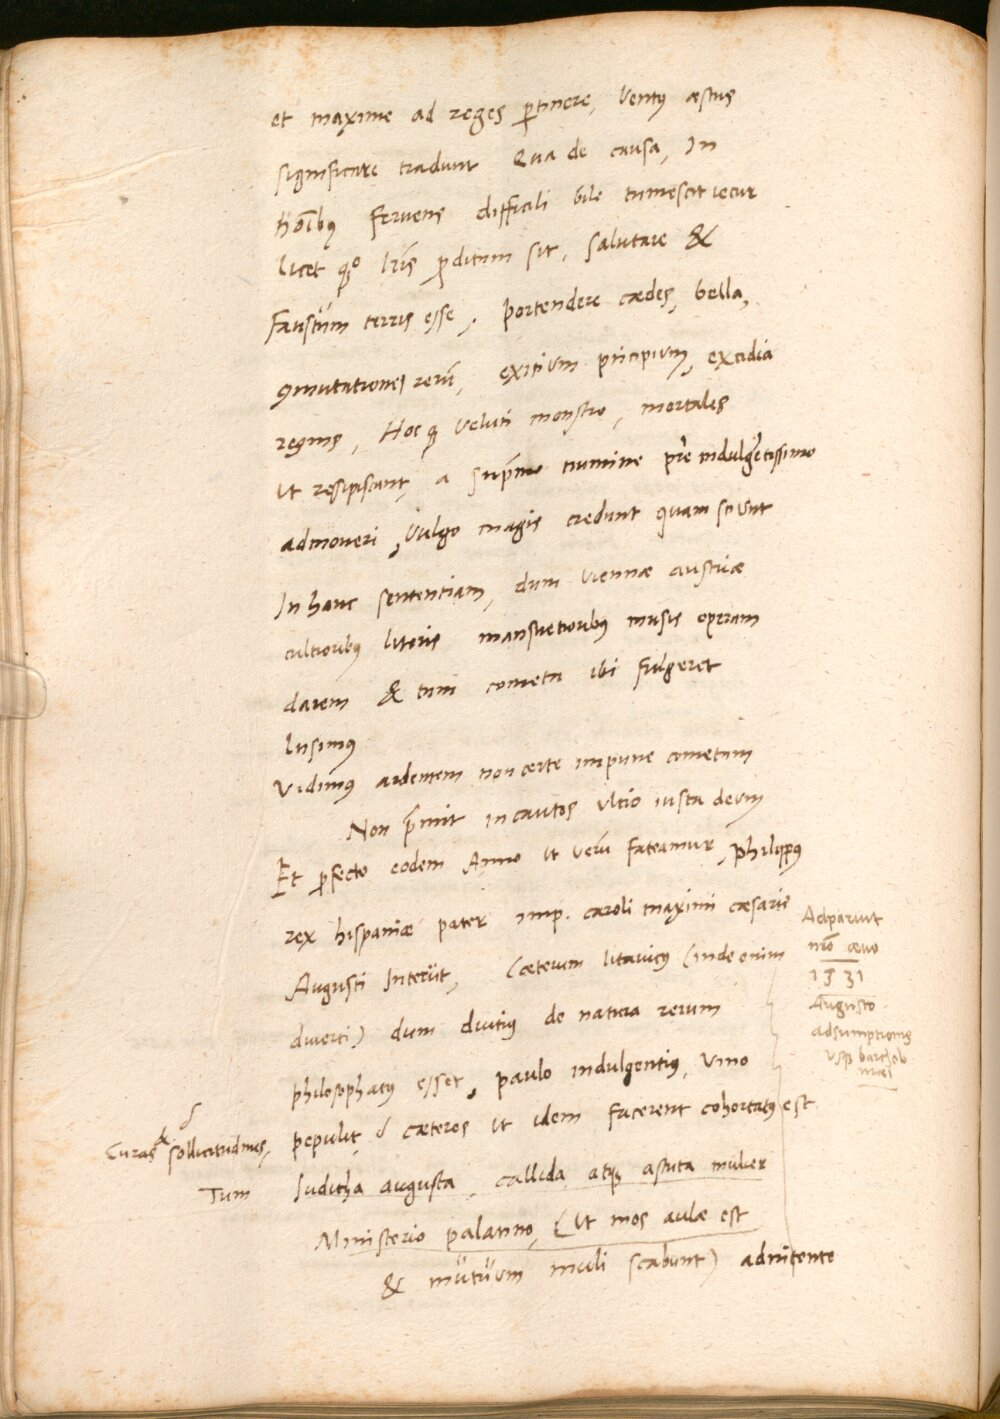 et maxime ad reges ꝑtinere, Ventꝯ æstus
significare tradunt Qua de causa, In
hoı̄bꝯ fervens difficili bile tumescit iecur
licet ꝙº l̄r̄is ꝓditum sit, salutare &
faustum terris esse, portendere cædes, bella,
ꝯmutationes rerū, exitium principum, excidia
regnis, Hoc ꝙ veluti monstro, mortales
ut resipiscant, a sup̄mo numine p̄re indulgētissimo
admoveri, Vulgo magis credunt quam sciunt
In hanc sententiam, dum Viennæ austriæ
cultioribꝯ literis mansuetioribꝯ musis operam
darem & tum cometa ibi fulgeret
lusimꝯ
Vidimꝯ ardentem non certe impune cometam
Non p̄mit incautos ultio iusta deum
Et ꝓfecto eodem Anno ut verū fateamur, philippꝯ
rex hispaniæ pater imp. caroli maximi cæsaris
Augusti Interiit, Cæterum litavicꝯ (inde enim
diverti) dum diutiꝯ de natura rerum
philosophatꝯ esset, paulo indulgentiꝯ, vino
pepulit, cæteros ut idem facerent cohortatꝯ est
Iuditha augusta, callida atꝗ astuta mulier
Ministerio palatino, (ut mos aulæ est
& mutuum muli scabunt) adnitente
Adparuit
nr̄o ævo
1531
Augusto
adsumptionis
usꝗ barthol
mei
Curas & sollicitudines,
Tum